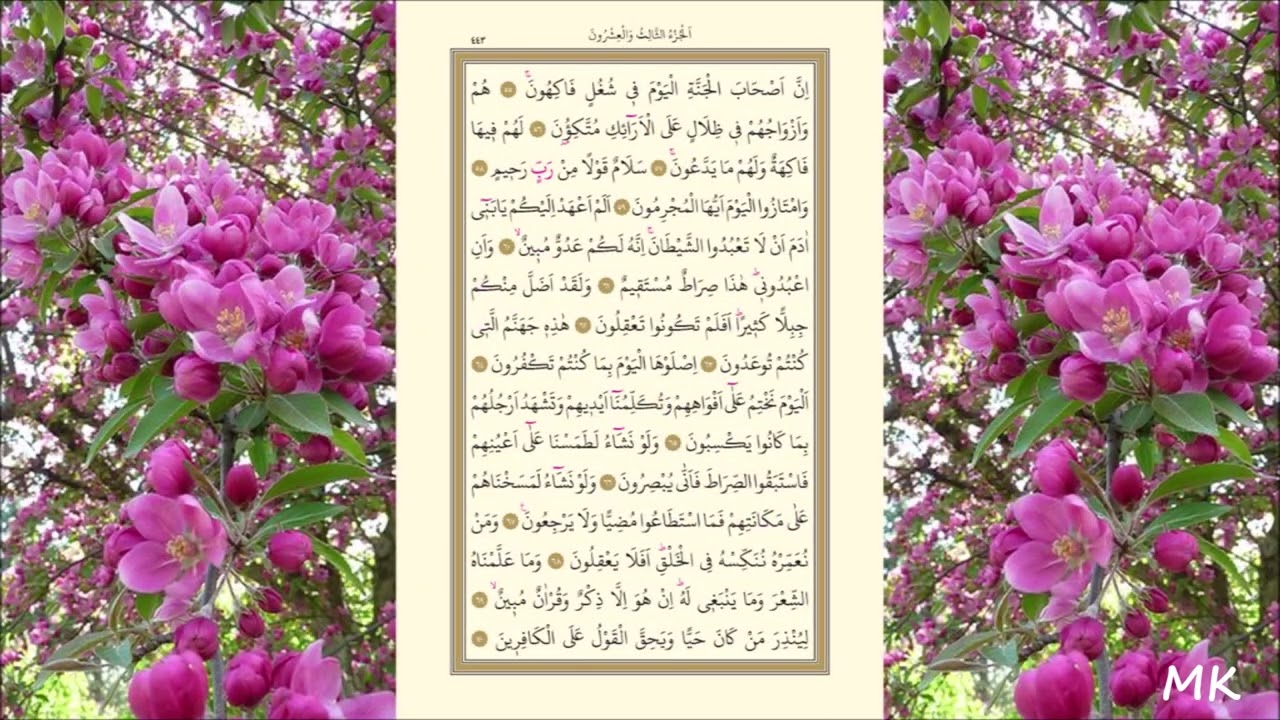 اَلْجُزْءُ الثَّالِثُ وَالْعِشْرُونَ
٤٤٣
اِنَّ اَصْحَابَ الْجَنَّةِ الْيَوْمَ ف۪ي شُغُلٍ فَاكِهُونَۚ ﴿٥٥﴾ هُمْ
وَاَزْوَاجُهُمْ ف۪ي ظِلَالٍ عَلَى الْاَرَٓائِكِ مُتَّكِؤُ۫نَ ﴿٥٦﴾ لَهُمْ ف۪يهَا
فَاكِهَةٌ وَلَهُمْ مَا يَدَّعُونَۚ ﴿٥٧﴾ سَلَامٌ قَوْلًا مِنْ رَبٍّ رَح۪يمٍ ﴿٥٨﴾
وَامْتَازُوا الْيَوْمَ اَيُّهَا الْمُجْرِمُونَ ﴿٥٩﴾ اَلَمْ اَعْهَدْ اِلَيْكُمْ يَا بَن۪ٓي
اٰدَمَ اَنْ لَا تَعْبُدُوا الشَّيْطَانَۚ اِنَّهُ لَكُمْ عَدُوٌّ مُب۪ينٌۙ ﴿٦٠﴾ وَاَنِ
اعْبُدُون۪يۜ هٰذَا صِرَاطٌ مُسْتَق۪يمٌ ﴿٦١﴾ وَلَقَدْ اَضَلَّ مِنْكُمْ
جِبِلًّا كَث۪يرًاۜ اَفَلَمْ تَكُونُوا تَعْقِلُونَ ﴿٦٢﴾ هٰذِه۪ جَهَنَّمُ الَّت۪ي
كُنْتُمْ تُوعَدُونَ ﴿٦٣﴾ اِصْلَوْهَا الْيَوْمَ بِمَا كُنْتُمْ تَكْفُرُونَ ﴿٦٤﴾
اَلْيَوْمَ نَخْتِمُ عَلٰٓى اَفْوَاهِهِمْ وَتُكَلِّمُنَٓا اَيْد۪يهِمْ وَتَشْهَدُ اَرْجُلُهُمْ
بِمَا كَانُوا يَكْسِبُونَ ﴿٦٥﴾ وَلَوْ نَشَٓاءُ لَطَمَسْنَا عَلٰٓى اَعْيُنِهِمْ
فَاسْتَبَقُوا الصِّرَاطَ فَاَنّٰى يُبْصِرُونَ ﴿٦٦﴾ وَلَوْ نَشَٓاءُ لَمَسَخْنَاهُمْ
عَلٰى مَكَانَتِهِمْ فَمَا اسْتَطَاعُوا مُضِيًّا وَلَا يَرْجِعُونَ۟ ﴿٦٧﴾ وَمَنْ
نُعَمِّرْهُ نُنَكِّسْهُ فِي الْخَلْقِۜ اَفَلَا يَعْقِلُونَ ﴿٦٨﴾ وَمَا عَلَّمْنَاهُ
الشِّعْرَ وَمَا يَنْبَغ۪ي لَهُۜ اِنْ هُوَ اِلَّا ذِكْرٌ وَقُرْاٰنٌ مُب۪ينٌۙ ﴿٦٩﴾
لِيُنْذِرَ مَنْ كَانَ حَيًّا وَيَحِقَّ الْقَوْلُ عَلَى الْكَافِر۪ينَ ﴿٧٠﴾
MK